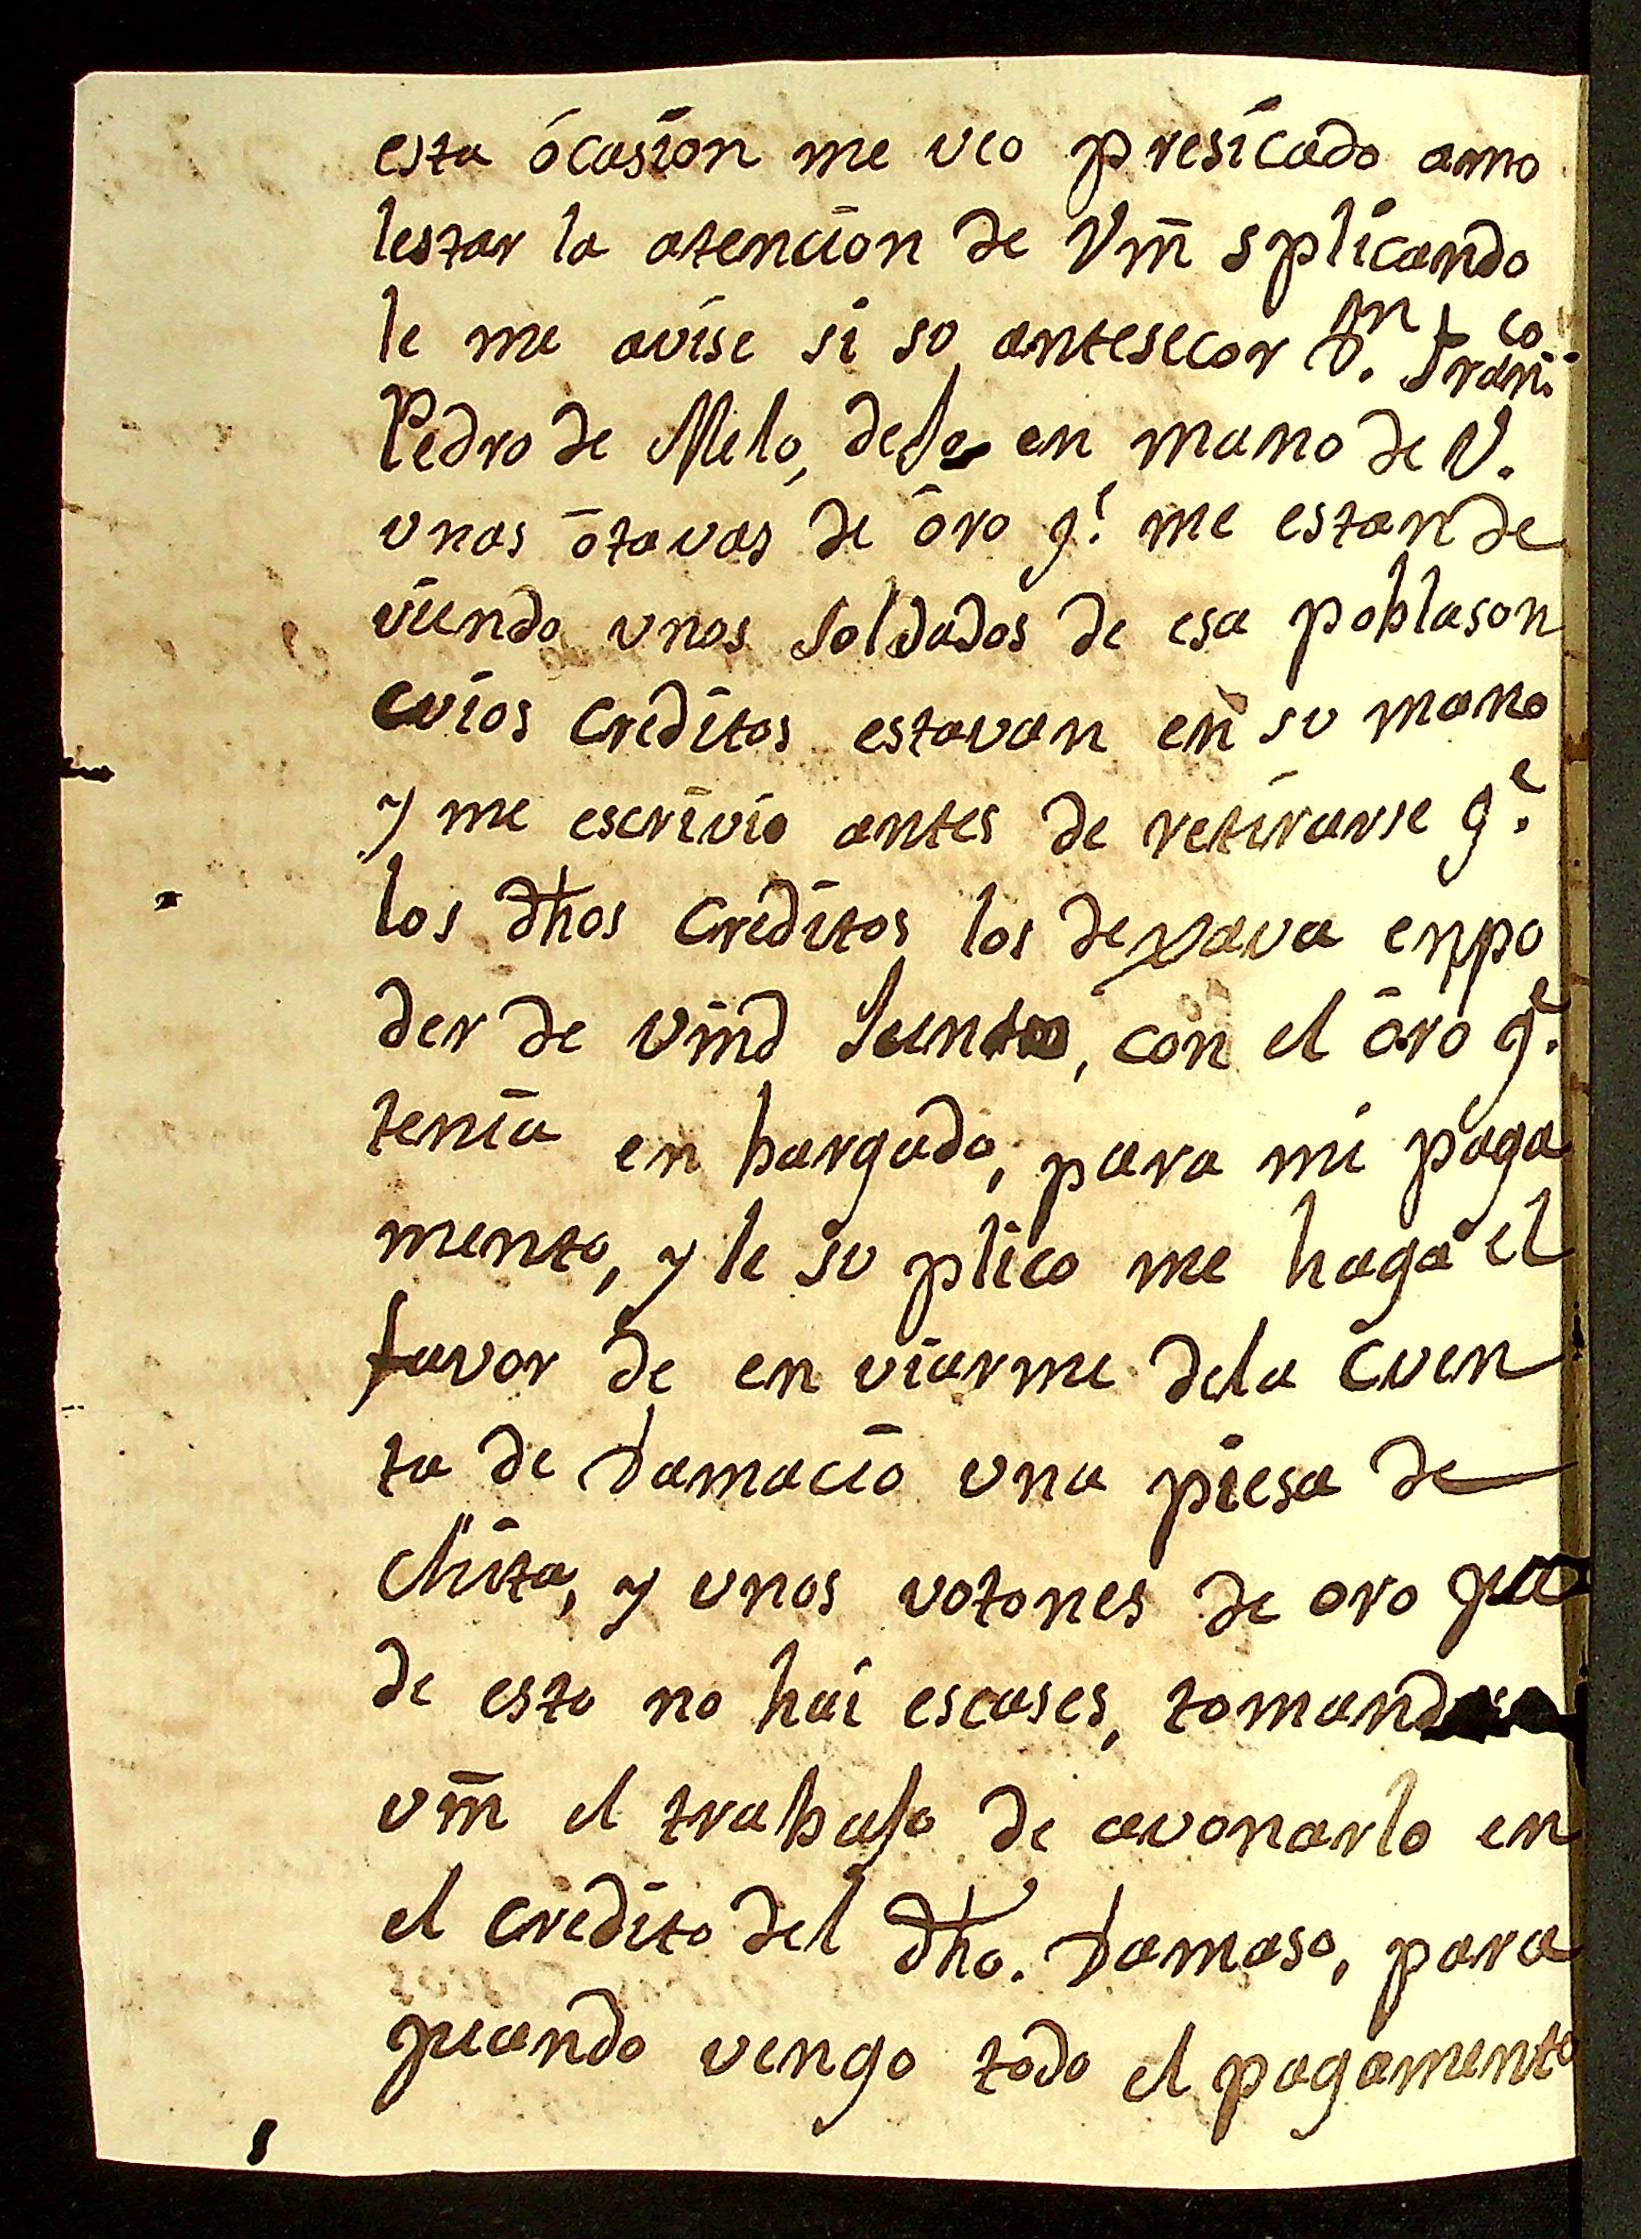 esta ócasion me veo presicado amo
lestar la atencion de Vm̃ splicando
le me avise si su antesecor D.n Fran.co
Pedro de Melo, dejo en mano de V.
unas ōtavas de ōro q.e me estan de
viendo unos soldados de esa poblason
cuios creditos estavan en su mano
y me escrivio antes de retirarse q.e
los dhos creditos los dexava enpo
der de vmd Junto, con el ōro q.e
tenia en bargado, para mi paga
mento, y le su plico me haga el
favor de en viarme dela cuen
ta de Damacio una piesa de
Chita, y unos votones de oro que
de esto no hai escases, tomando
vm̃ el trabajo de avonarlo en
el credito del dho. Damaso, para
quando vengo todo el pagamento